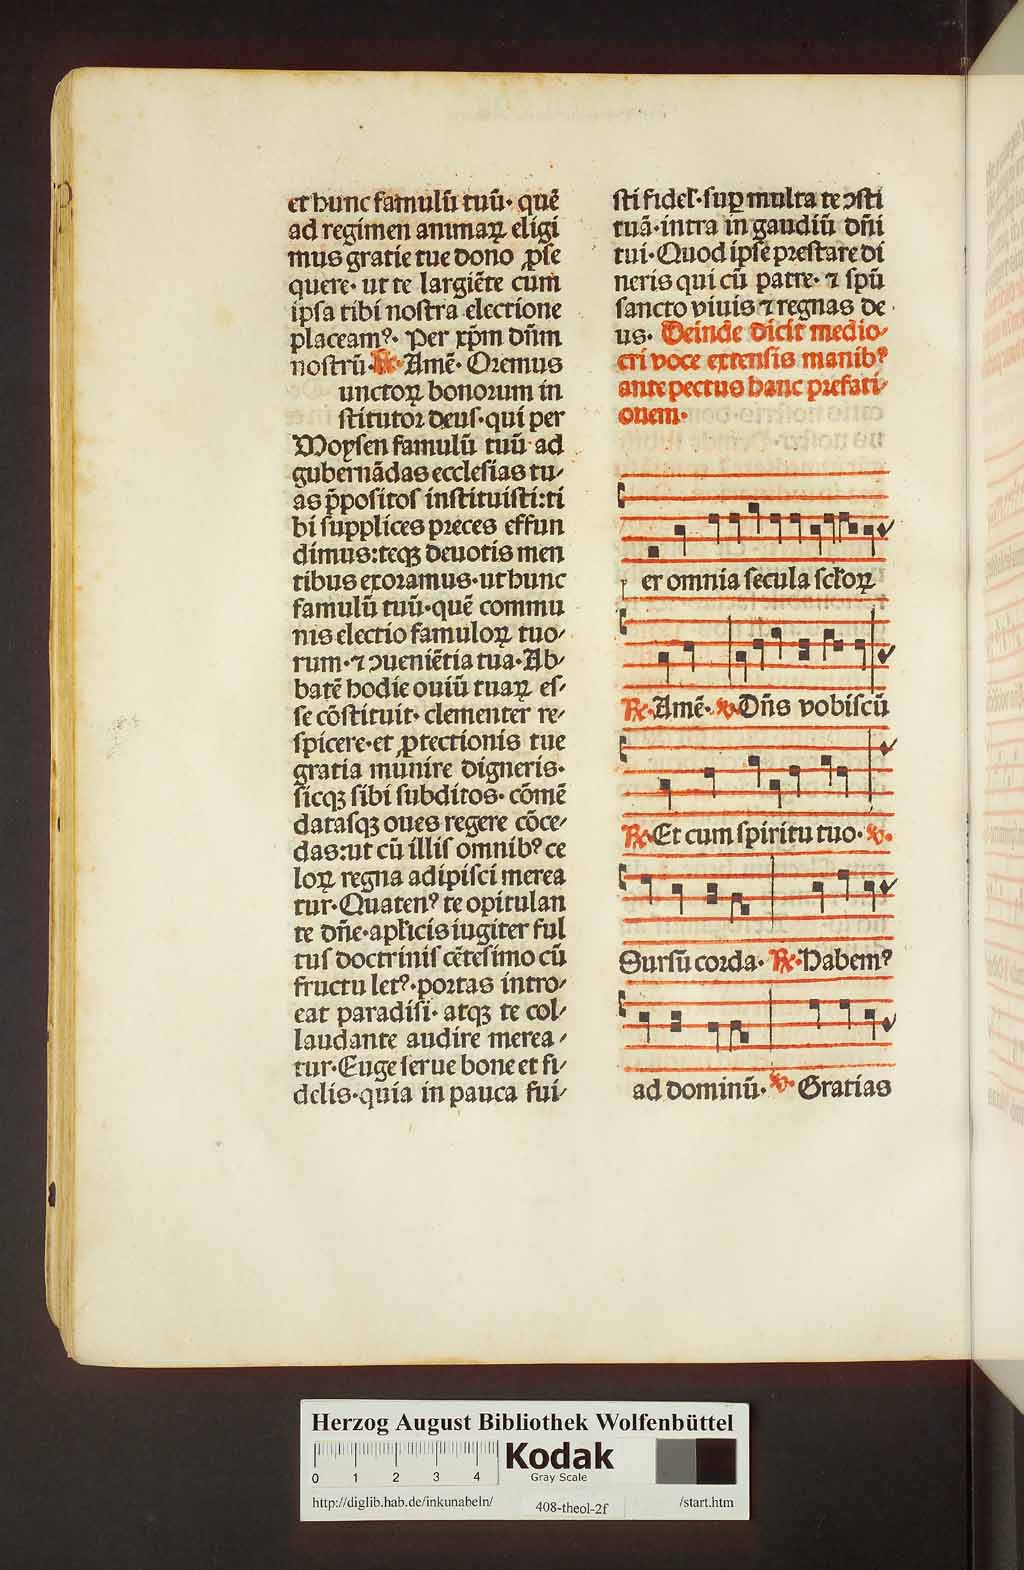 et hunc famulū tuū· quē
ad regimen animaꝝ eligi
mus gratie tue dono ꝓse
quere· ut te largiēte cum
ipsa tibi nostra electione
placeamꝰ· Per xp̄m dn̄m
nostrū· ℟· Amē· Oremus
unctoꝝ bonorum in
stitutor deus· qui per
Moysen famulū tuū ad
gubernādas ecclesias tu⸗
as p̄positos instituisti: ti
bi supplices preces effun
dimus: teqꝫ deuotis men
tibus exoramus· ut hunc
famulū tuū· quē commu
nis electio famuloꝝ tuo⸗
rum· ⁊ ↄueniētia tua· Ab⸗
batē hodie ouiū tuaꝝ es⸗
se cōstituit· clementer re⸗
spicere· et ꝓtectionis tue
gratia munire digneris·
sicqꝫ sibi subditos· cōmē
datasqꝫ oues regere cōce⸗
das: ut cū illis omnibꝰ ce
loꝝ regna adipisci merea
tur· Quatenꝰ te opitulan
te dn̄e· apl̄icis iugiter ful
tus doctrinis cētesimo cū
fructu letꝰ· portas intro⸗
eat paradisi· atqꝫ te col⸗
laudante audire merea⸗
tur· Euge serue bone et fi⸗
delis· quia in pauca fui⸗
sti fidel̄· suꝑ multa te ↄsti
tuā· intra in gaudiū dn̄i
tui· Quod ipse prestare di
neris qui cū patre· ⁊ spū
sancto viuis ⁊ regnas de
us· Deinde dicit medio⸗
cri voce extensis manibꝰ
ante pectus hanc prefati⸗
onem·
p er omnia secula scl̄oꝝ
℟· Amē· ℣· Dn̄s vobiscū
℟· Et cum spiritu tuo· ℣·
Sursū corda· ℟· Habemꝰ
ad dominū· ℣· Gratias
Herzog August Bibliothek Wolfenbüttel
0 1 2 3 4
Kodak
Gray Scale
http://diglib.hab.de/inkunabeln/ 408-theol-2f /start.htm